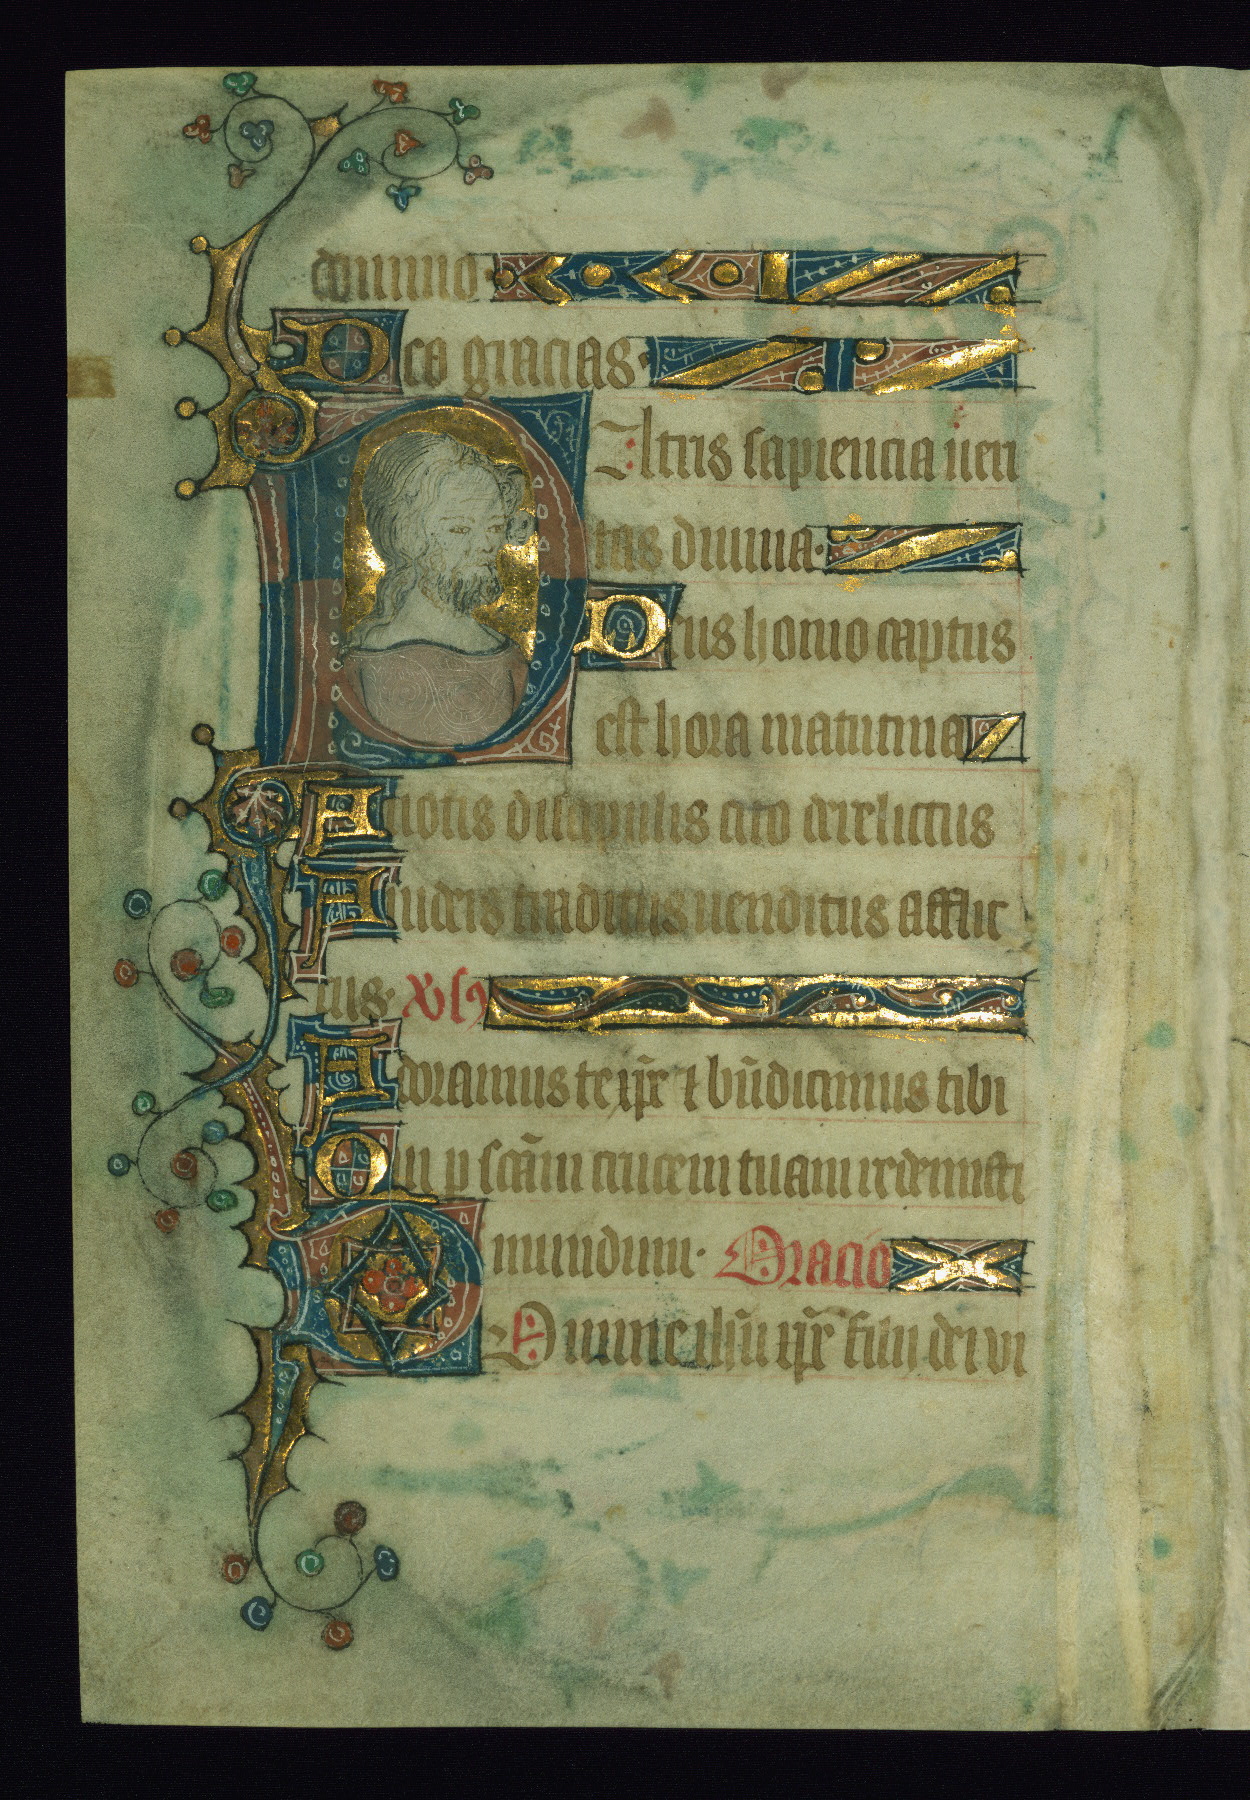 domino.
Deo gracias.
PAtris sapiencia ueri
tas diuina.
Deus homo captus
est hora matutina
A notis discipulis cito derelictus
A iudeis traditus uenditus afflic
tus. Vs9
Adoramus te xp̄e ⁊ bn̄dicimus tibi
Qui p scām crucem tuam redemisti
mundum. Oracio
DOmine ihū xp̄e fili dei vi